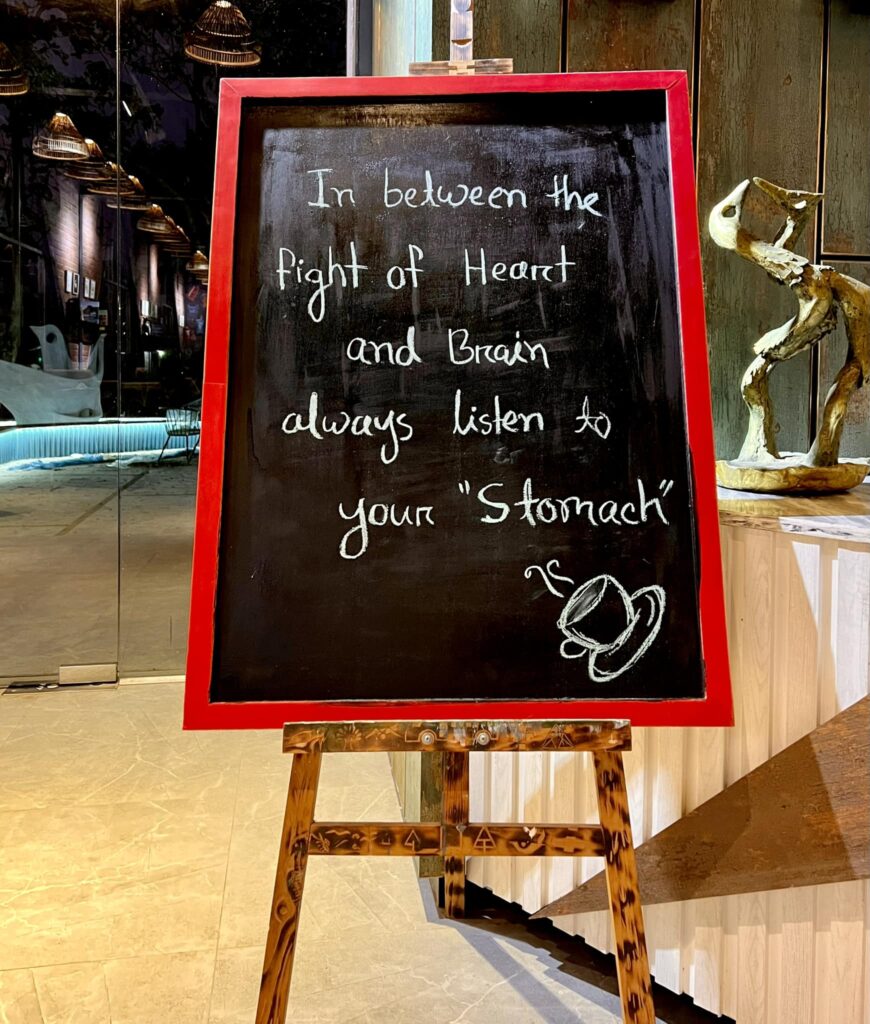 In between the
fight of Heart
and Brain
always listen to
your "Stomach"